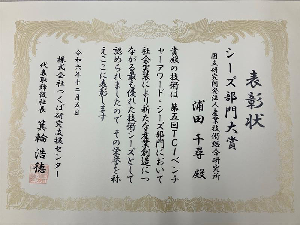 表彰状
シーズ部門大賞
国立研究開発法人産業技術総合研究所
浦田千尋 殿
貴殿の技術は 第五回TCIベンチ
ャーアワード・シーズ部門において
社会実装により新たな産業創造につ
ながる最も優れた技術シーズとして
認められましたので その栄誉を称
えここに表彰します
令和六年十二月五日
株式会社つくば研究支援センター
代表取締役社長 箕輪浩徳